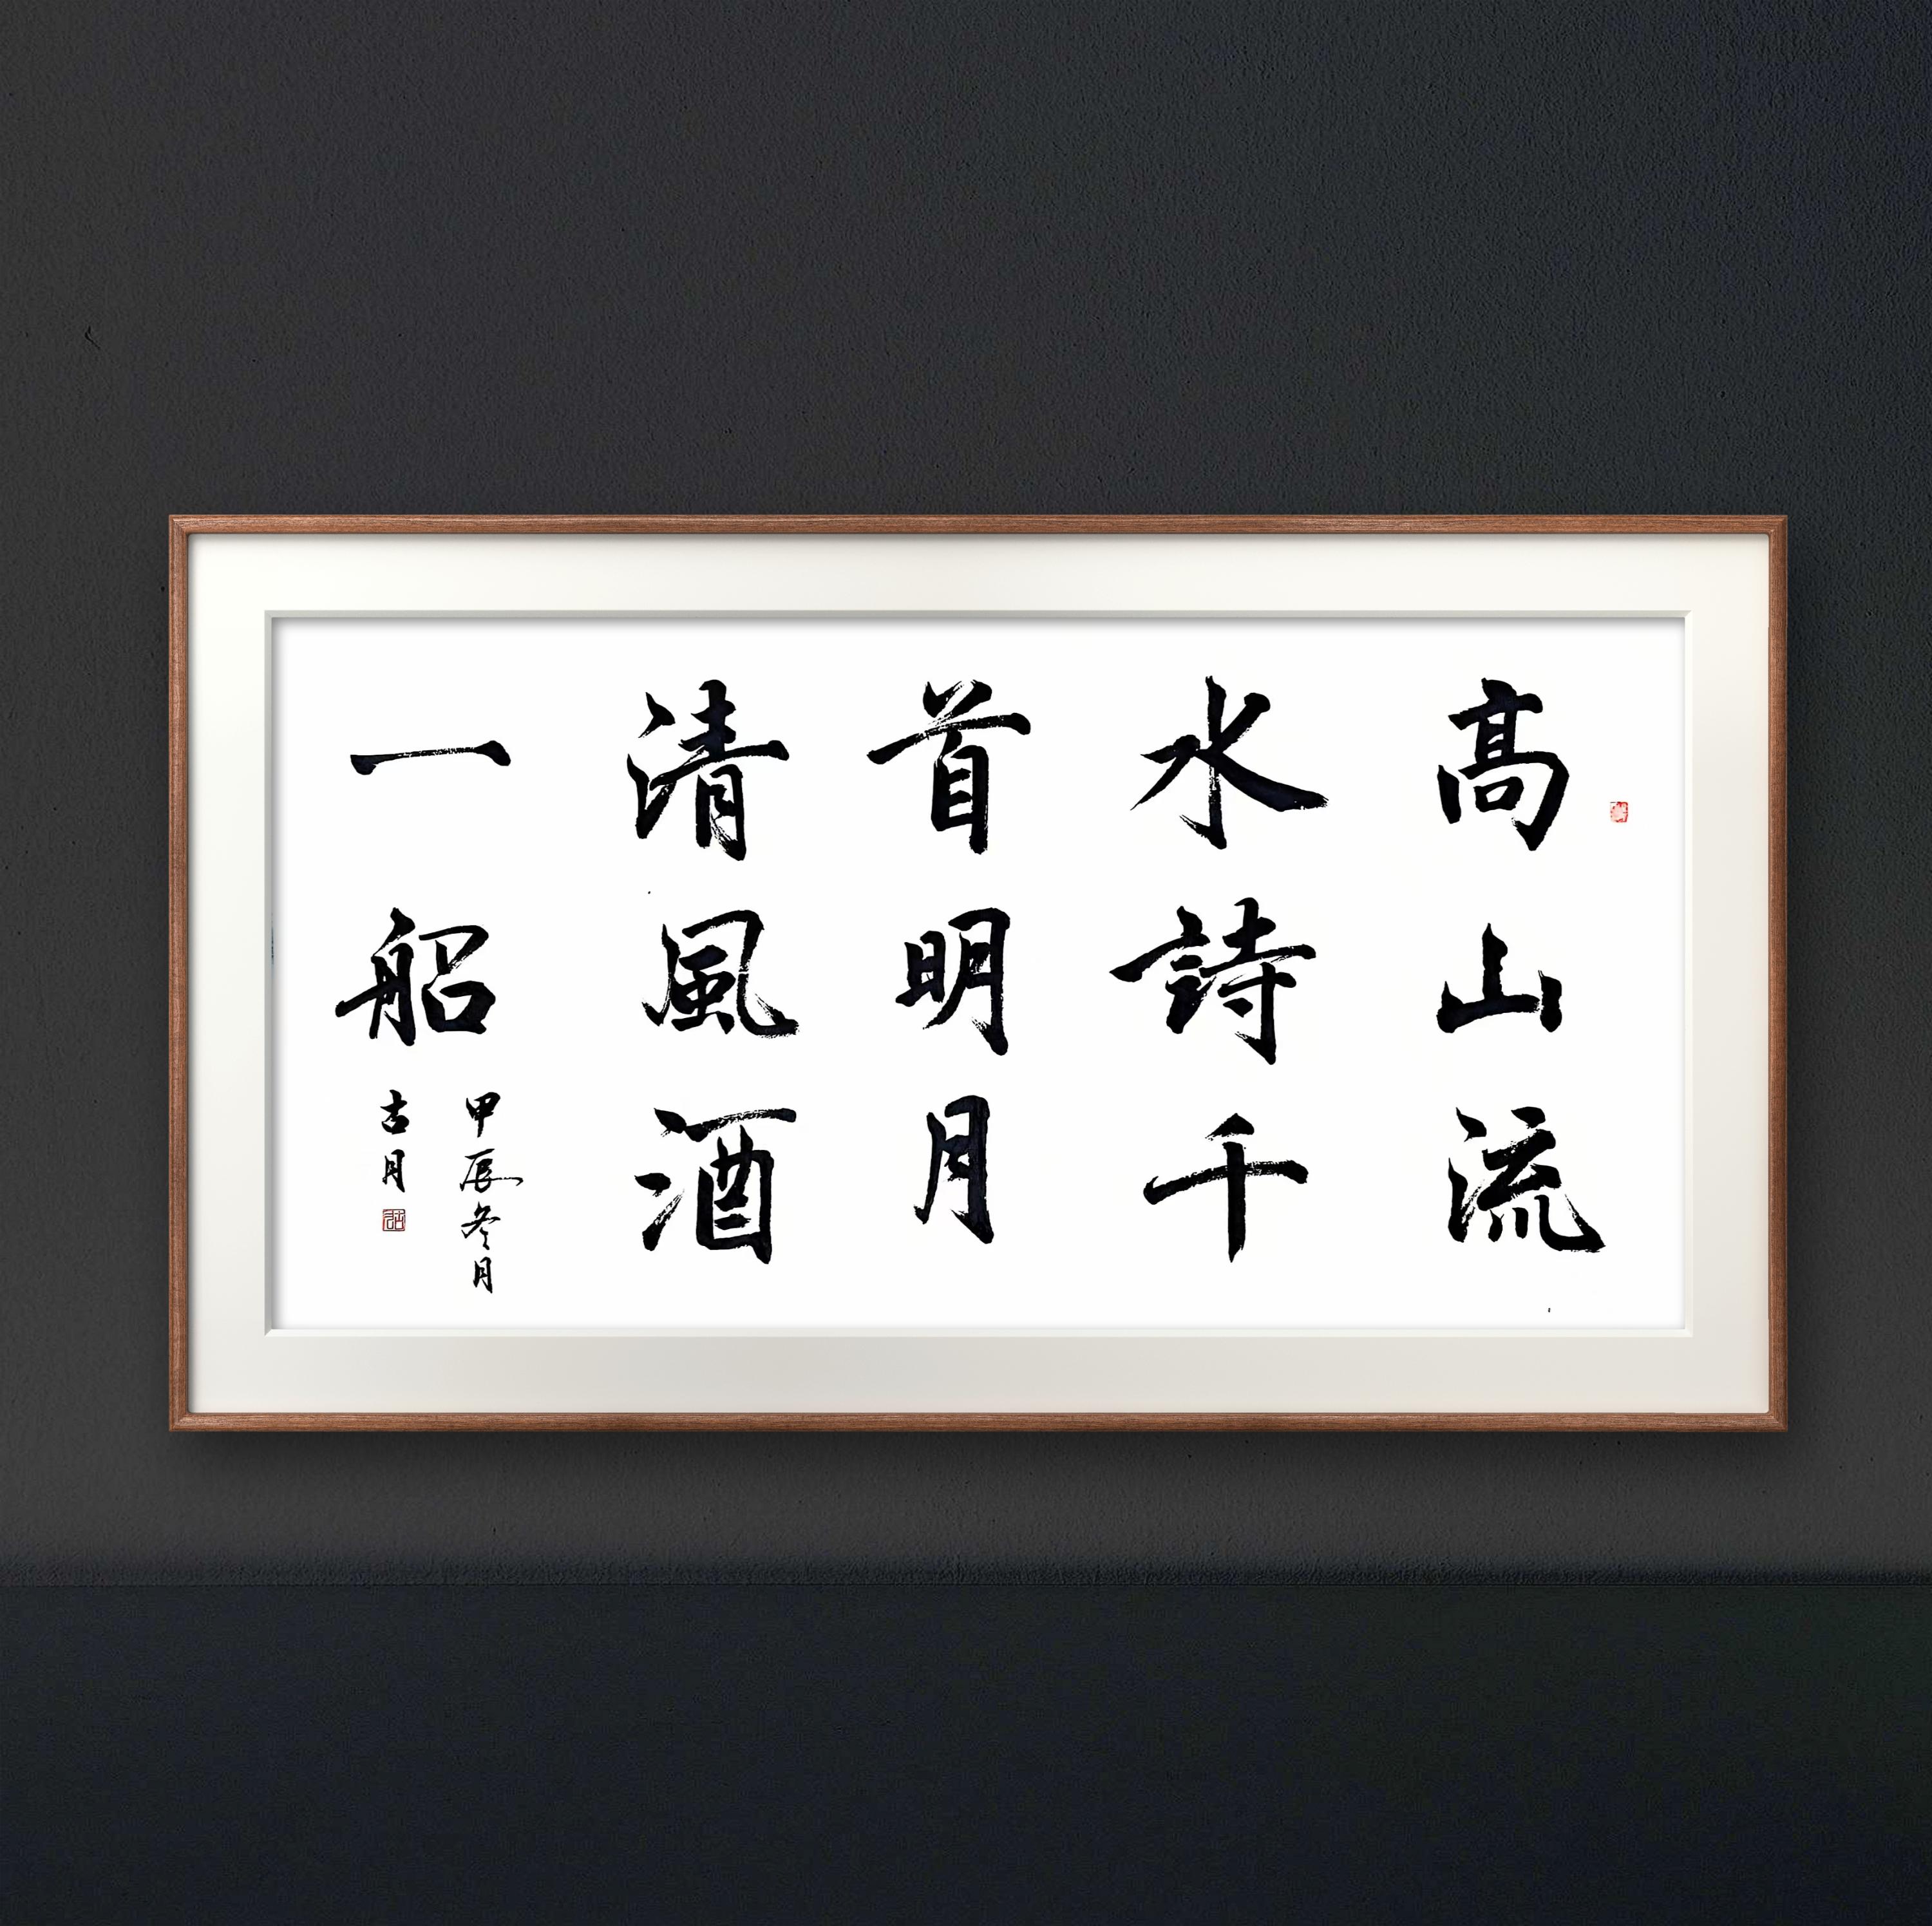 髙山流
水詩千
首明月
清風酒
一船
甲辰冬月
古月